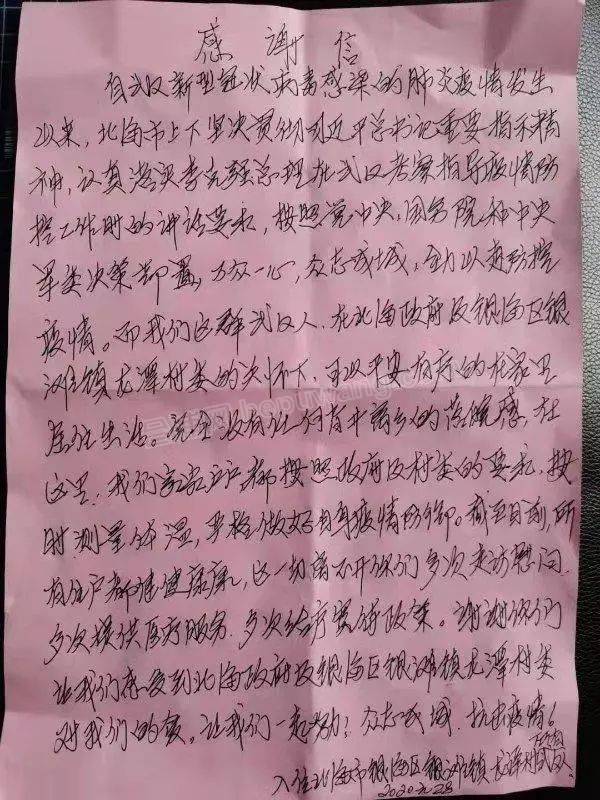 感谢信
自武汉新型冠状病毒感染的肺炎疫情发生
以来，北海市上下坚决贯彻习近平总书记重要指示精
神，认真落实李克强总理在武汉考察指导疫情防
控工作时的讲话要求，按照党中央，国务院和中央
军委决策部署，万众一心，众志成城，全力以赴防控
疫情。而我们这群武汉人，在北海政府及银海区银
滩镇龙潭村委的关怀下，可以平安有序的在家里
居住生活。完全没有让何背井离乡的落魄感，在
这里，我们家家户户都按照政府及村委的要求，按
时测量体温，严格做好自身疫情防御。截至目前，所
有住户都健健康康，这一切离不开你们多次走访慰问，
多次提供医疗服务，多次给予宣传政策。谢谢你们
让我们感受到北海政府及银海区银滩镇龙潭村委
对我们的爱。让我们一起努力！众志成城，抗击疫情！
入住北海市银海区银滩镇龙潭村武汉人
2020.2.28